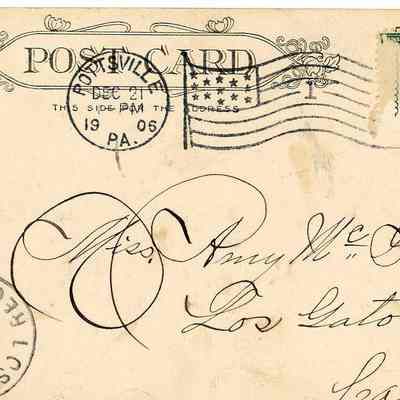 POST CARD
THIS SIDE FOR THE ADDRESS
POTTSVILLE
DEC 21
PM
1906
PA.
1
Miss. Amy Mc
Los Gato
REC
LOS